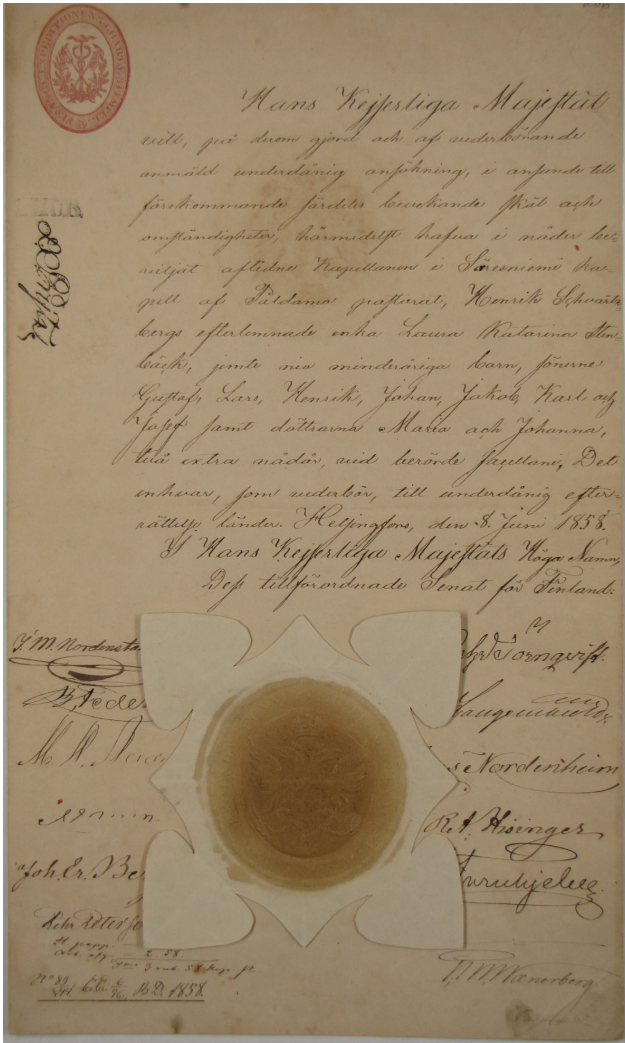 Hans Kejserliga Majestät
vill, på derom gjord och af vederbörande
anmäld underdånig ansökning, i anseende till
förekommande särdeles bevekande skäl och
omständigheter, härmedelst hafva i nåder be-
viljat aflidne Kapellanen i Säresniemi ka-
pell af Paldamo pastorat, Henrik Schvarts-
bergs efterlemnade enka Laura Katarina Sten-
bäck, jemte nio minderåriga barn, sönerne
Gustaf, Lars, Henrik, Johan, Jakob, Karl och
Josef samt döttrarna Maria och Johanna,
två extra nådår, vid berörde sacellani; Det
enhvar, som vederbör, till underdånig efter-
rättelse länder. Helsingfors, den 8 Juni 1858.
I Hans Kejserliga Majestäts Höga Namn,
Dess tillförordnade Senat för Finland:
J. M. Nordensta
Törnqvist.
Nordenheim
R. A. Hisinger
Joh. Er. Be
2. 58.
3 rub 58 kop. sr
No 89
B.D. 1858.